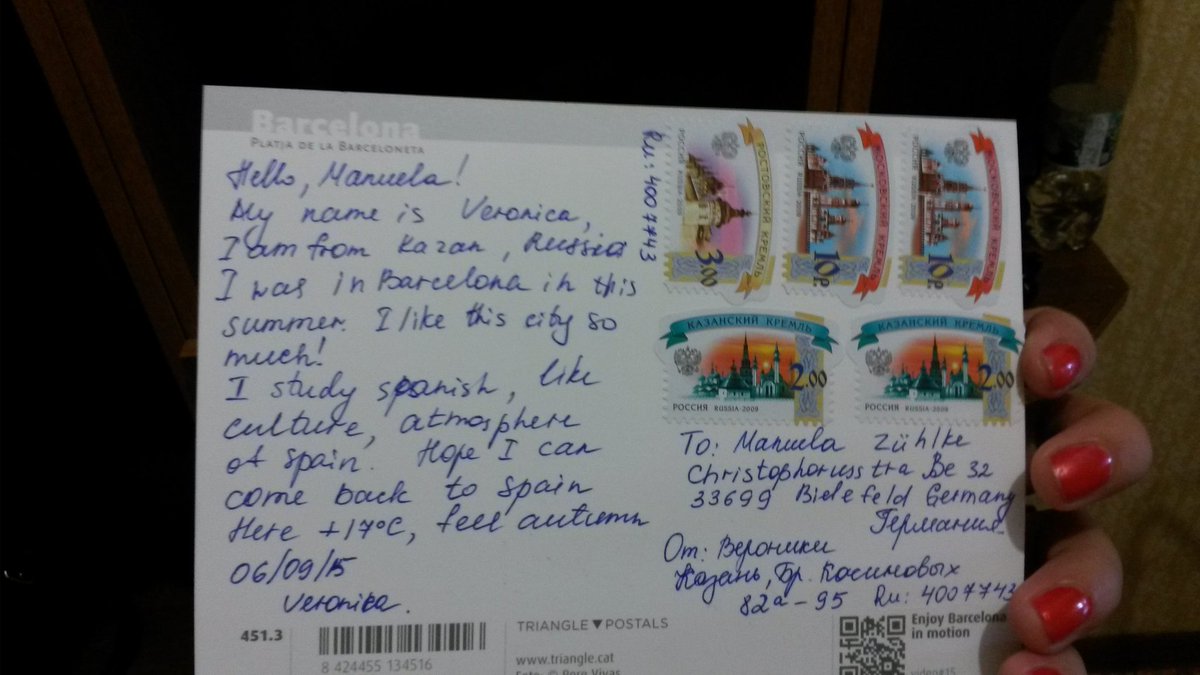 Barcelona
PLATJA DE LA BARCELONETA
Hello, Manuela!
My name is Veronica,
I am from Kazan, Russia
I was in Barcelona in this
summer. I like this city so
much!
I study spanish, like
culture, atmosphere
of Spain. Hope I can
come back to Spain
Here +17°C, feel autumn
06/09/15
Veronica.
Ru: 4007743
РОСТОВСКИЙ КРЕМЛЬ
РОССИЯ RUSSIA 2009
3.00
МОСКОВСКИЙ КРЕМЛЬ
РОССИЯ RUSSIA 2009
10р.
МОСКОВСКИЙ КРЕМЛЬ
РОССИЯ RUSSIA 2009
10р.
КАЗАНСКИЙ КРЕМЛЬ
2.00
РОССИЯ RUSSIA-2009
КАЗАНСКИЙ КРЕМЛЬ
2.00
РОССИЯ RUSSIA-2009
To: Manuela Zühlke
Christophorusstra Be 32
33699 Bielefeld Germany
Германия
От: Вероники
Казань, Бр. Касимовых
82а-95 Ru: 4007743
451.3
8 424455 134516
TRIANGLE▼POSTALS
www.triangle.cat
Foto: © Pere Vivas
Enjoy Barcelona
in motion
video#15